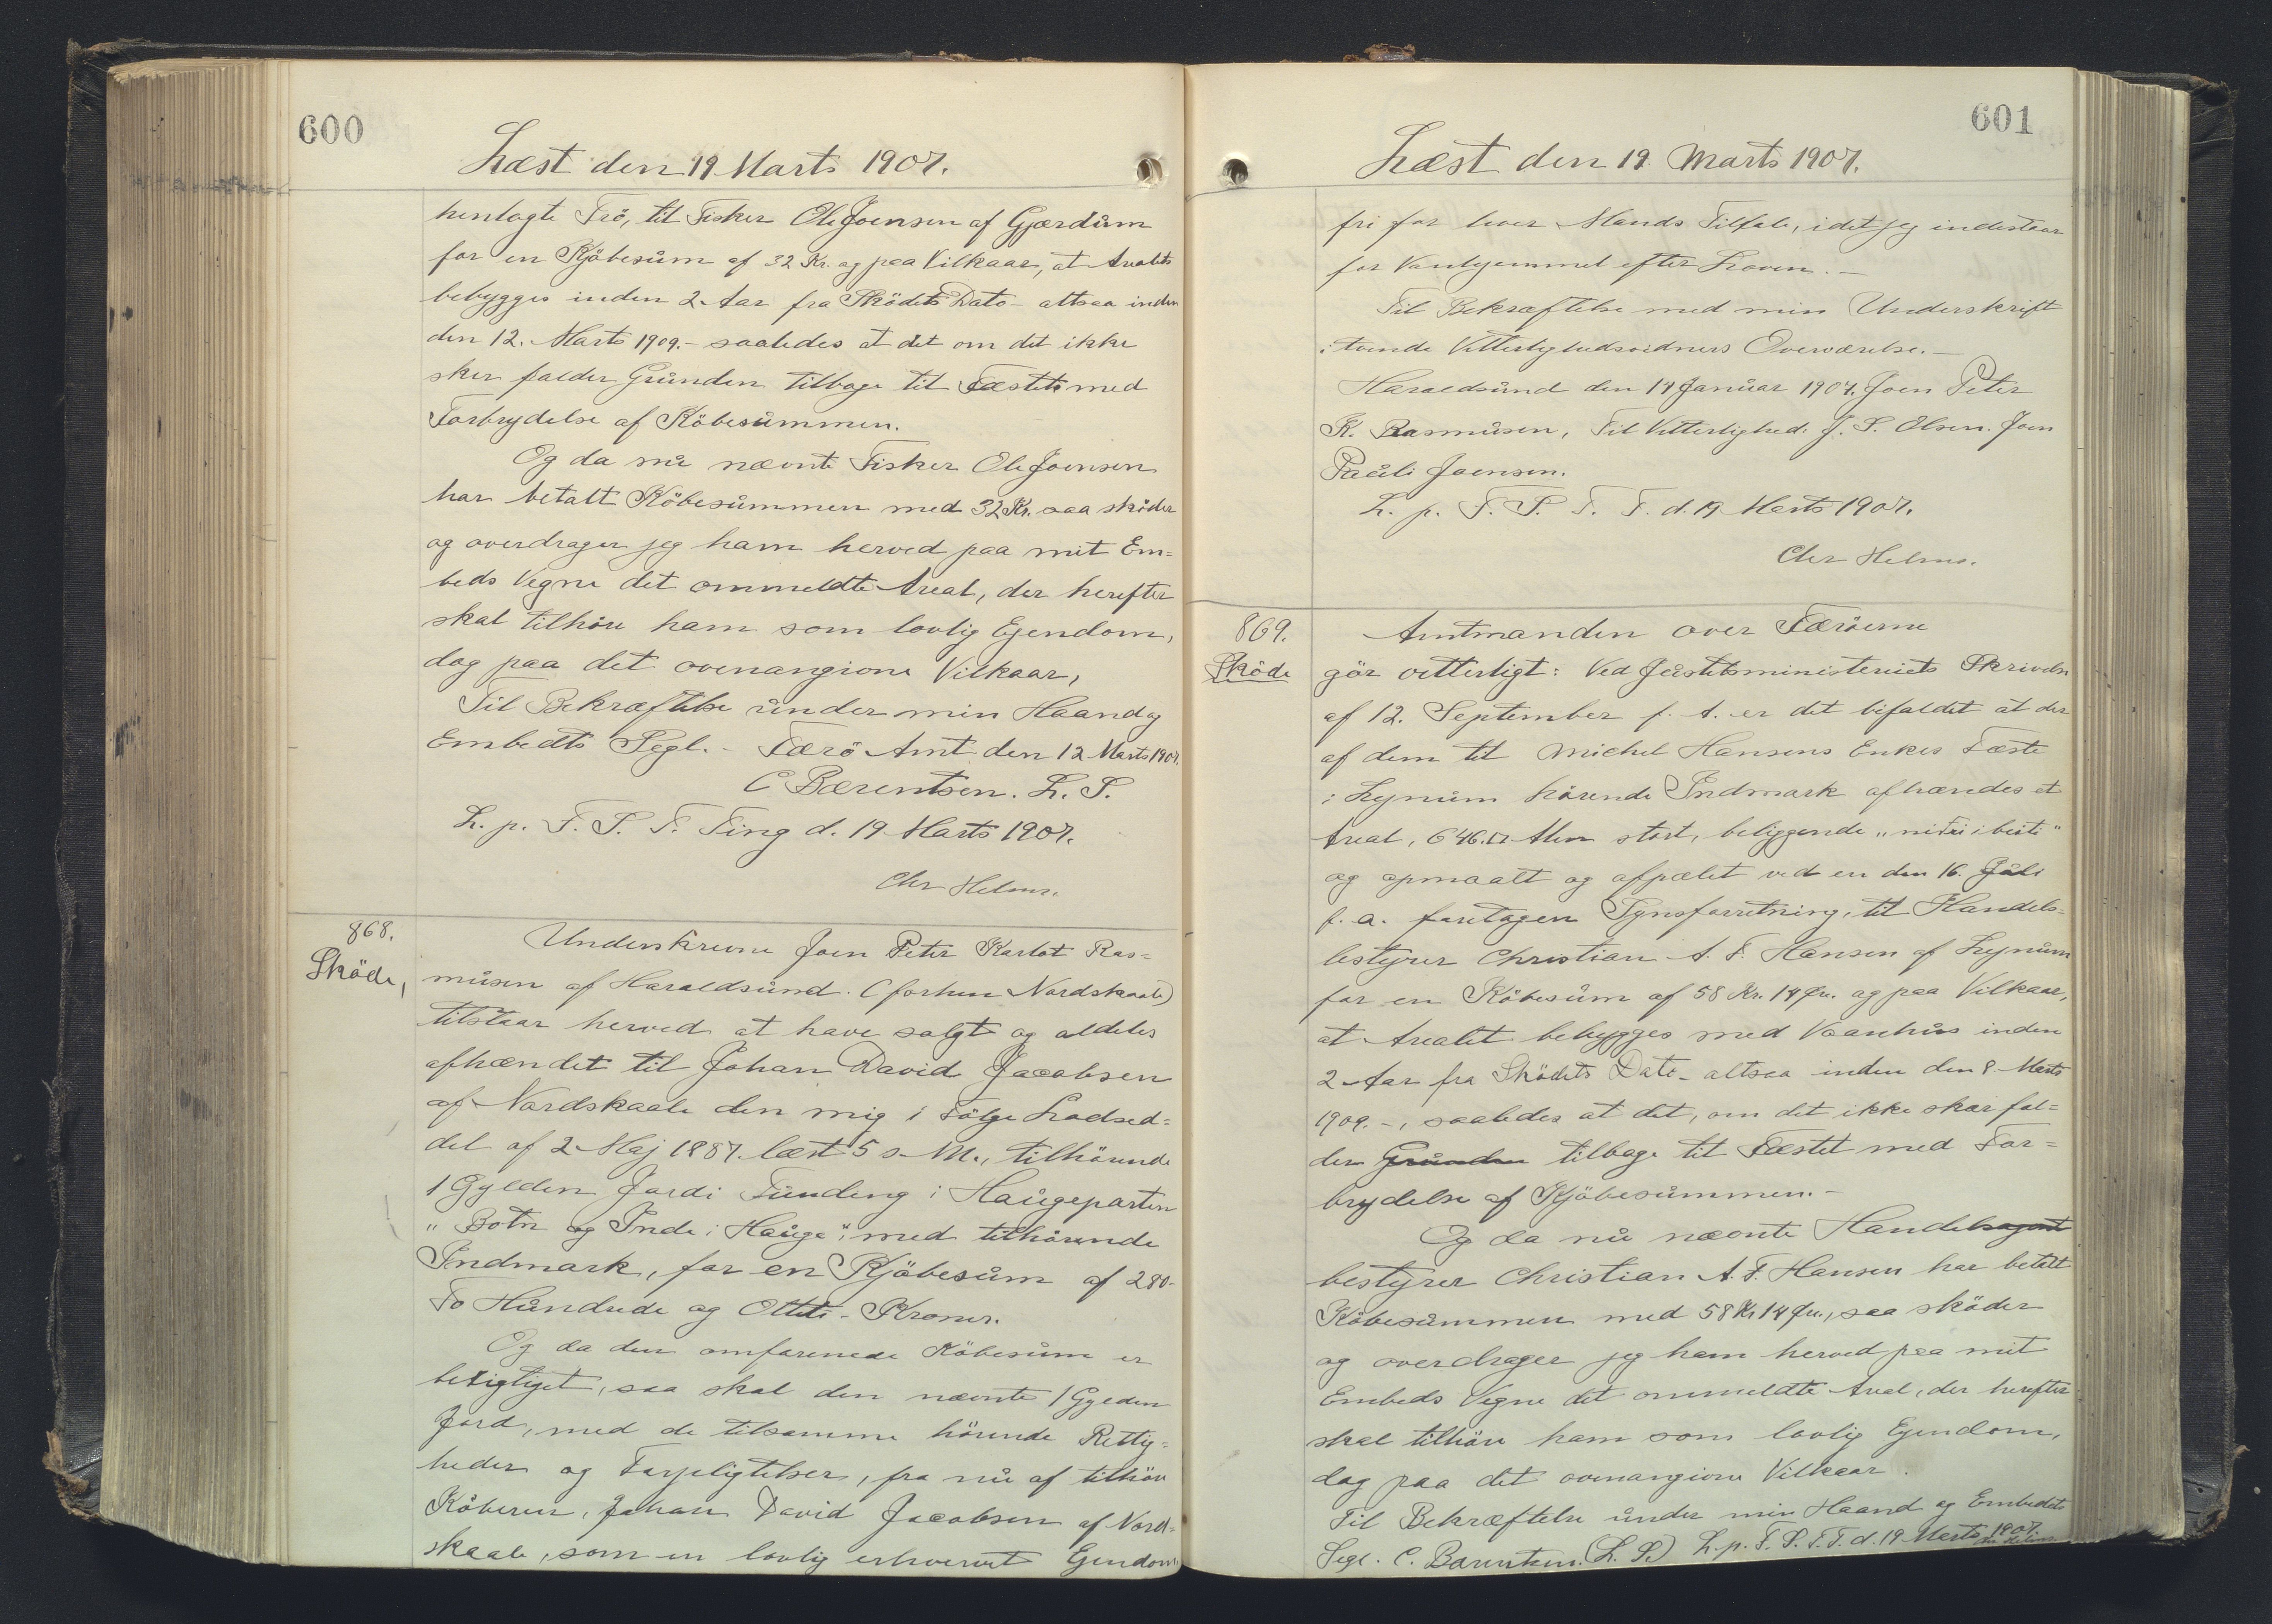 600
Læst den 19 Marts 1907.
henlagte Trö, til Fisker Ole Joensen af Gjærdum
for en Kjöbesum af 32 Kr. og paa Vilkaar, at Arealet
bebygges inden 2 Aar fra Sködets Dato - altsaa inden
den 12. Marts 1909. - saaledes at det om det ikke
sker falder Grunden tilbage til Fæstet med
Forbrydelse af Köbesummen.
Og da nu nævnte Fisker Ole Joensen
har betalt Köbesummen med 32 Kr. saa sköder
og overdrager jeg ham herved paa mit Em=
beds Vegne det ommeldte Areal, der herefter
skal tilhöre ham som lovlig Ejendom,
dog paa det ovenangivne Vilkaar,
Til Bekræftelse under min Haand og
Embedts Segl. - Færö Amt den 12 Marts 1907.
C Bærentsen. L. S.
L. p. F. S. T. Ting d. 19 Marts 1907.
Chr Helms.
868.
Sköde,
Underskrevne Joen Peter Karlot Ras=
musen af Haraldsund. (forhen Nordskaale)
tilstaar herved at have solgt og aldeles
afhændet til Johan David Jacobsen
af Nordskaale den mig i Fölge Lodsed=
del af 2 Maj 1887. læst 5 s. M., tilhörende
1 Gylden Jord i Funding i Haugeparten
"Botn og Inde i Hauge" med tilhörende
Indmark, for en Kjöbesum af 280-
To Hundrede og Otteti - Kroner.
Og da den omforenede Köbesum er
berigtiget, saa skal den nævnte 1 Gylden
Jord, med de tilsamme hörende Rettig=
heder og Forpligtelser, fra nu af tilhöre
Köberen, Johan David Jacobsen af Nord=
skaale, som en lovlig erhvervet Ejendom,
601
Læst den 19. Marts 1907.
fri for hver Mands Tiltale, idet jeg indestaar
for Vanhjemmel efter Loven. -
Til Bekræftelse med min Underskrift
i tvende Vitterlighedsvidners Overværelse. -
Haraldsund den 14 Januar 1907. Joen Peter
K. Rasmusen, Til Vitterlighed: J. P. Olsen. Joen
Pauli Joensen.
L. p. F. S. T. T. d. 19 Marts 1907.
Chr Helms.
869.
Sköde
Amtmanden over Færöerne
gör vitterligt: Ved Justitsministeriets Skrivelse
af 12. September f. A. er det bifaldet at der
af dem til Michel Hansens Enkes Fæste
i Lynum hörende Indmark afhændes et
Areal, 646 □ Alen stort, beliggende
og opmaalt og afpælet ved en den 16. Juli
f. a. foretagen Synsforretning, til Handels=
bestyrer Christian A. F. Hansen af Lynum
for en Köbesum af 58 Kr. 14 Öre. og paa Vilkaar,
at Arealet bebygges med Vaanhus inden
2 Aar fra Sködets Dato - altsaa inden den 8. Marts
1909. -, saaledes at det, om det ikke sker fal=
der Grunden tilbage til Fæstet med For=
brydelse af Kjöbesummen. -
Og da nu nævnte Handelsagent
bestyrer Christian A. F. Hansen har betalt
Köbesummen med 58 Kr 14 Öre., saa sköder
og overdrager jeg ham herved paa mit
Embeds Vegne det ommeldte Areal, der herefter
skal tilhöre ham som lovlig Ejendom,
dog paa det ovenangivne Vilkaar.
Til Bekræftelse under min Haand og Embedets
Segl. C. Bærentsen. (L. S.) L. p. F. S. T. T. d. 19 Marts 1907.
Chr Helms